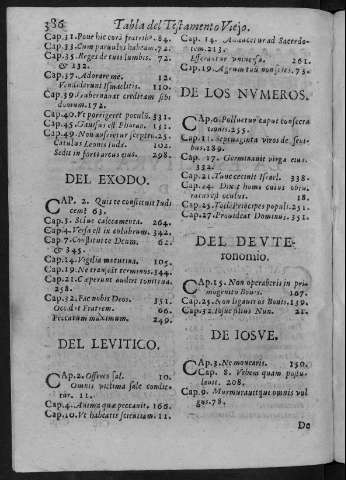 386 Tabla del Testamento Viejo.
Cap.31. Pour hic cora fratrib⁹. 84.
Cap.33. Cum paruulos habeam. 72.
Cap.35. Reges de tuis lumbis. 72.
& 132.
Cap.37. Adorare me. 12.
Vendiderunt Ismaelitis. 110.
Cap.39. Gubernauit creditam sibi
domum. 172.
Cap.40. Vt porrigeret poculū. 331.
Cap.45. Gauisus est Pharao. 151.
Cap.49. Non auferetur sceptrū. 25.
Catulus Leonis Iuda. 100.
Sedit in forti arcus eius. 298.
DEL EXODO.
CAP. 2. Quis te constituit Iudi
cem? 63.
Cap.3. Solue calceamenta. 264.
Cap.4. Versa est in colubrum. 342.
Cap.7. Constitui te Deum. 62.
& 345.
Cap.14. Vigilia matutina. 105.
Cap.19. Ne transeat terminos. 344.
Cap.21. Cæperunt audire sonitum
258.
Cap.32. Fac nobis Deos. 351.
Occidit Fratrem. 66.
Peccatum maximum. 249.
DEL LEVITICO.
CAp.2. Offeres sal. 10.
Omnis victima sale condie-
tur. 11.
Cap.4. Anima quæ peccauit. 166.
Cap.10. Vt habeatis scientiam. 11.
Cap. 14. Adducetur ad Sacerdo-
tem. 213.
Efferatur vniuersa. 261.
Cap.19. Agrum tuū non seres. 73.
DE LOS NVMEROS.
CAp.6. Polluetur caput consecra
tionis. 255.
Cap.11. Septuaginta viros de senio-
bus. 289.
Cap. 17. Germinauit virga eius.
332.
Cap.21. Tunc cecinit Israel. 338.
Cap.24. Dixit homo cuius obtu
ratus est oculus. 18.
Cap.25. Tolle Principes populi. 251.
Cap.27. Prouideat Dominus. 351.
DEL DEVTE-
ronomio.
CAp.15. Non operaberis in pri-
mogenito Bouis. 167.
Cap.25. Non ligauit os Bouis. 159.
Cap.32. Iosue filius Nun. 21.
DE IOSVE.
CAp.3. Ne moueatis. 150.
Cap. 8. Vrbem quam postu-
lauit. 208.
Cap.9. Murmurauitque omnis vul
gus. 78.
De